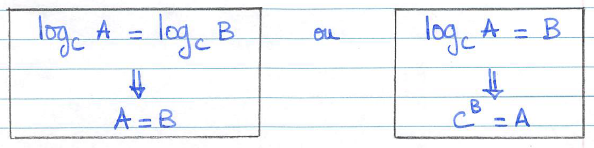 log_C A = log_C B ou log_C A = B
⇓ ⇓
A = B C^B = A